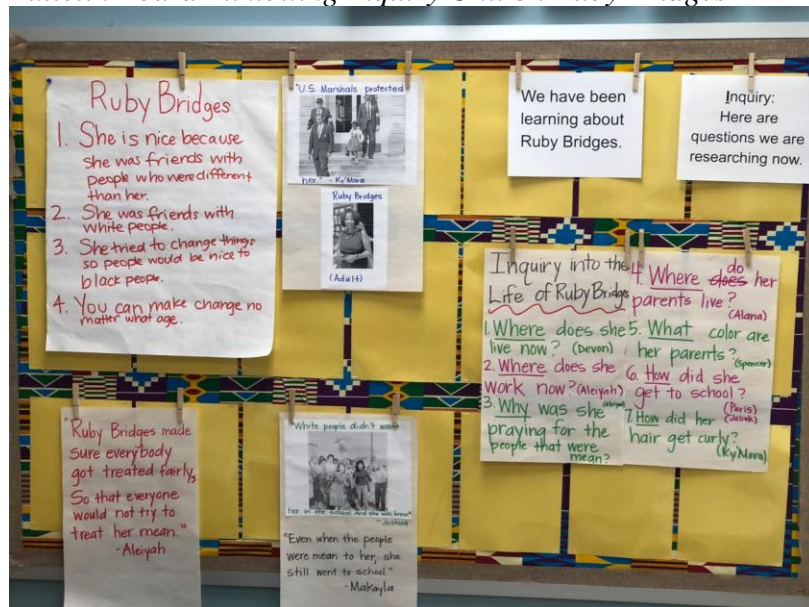 Ruby Bridges
1. She is nice because
she was friends with
people who were different
than her.
2. She was friends with
white people.
3. She tried to change things
so people would be nice to
black people.
4. You can make change no
matter what age.
"U.S. Marshals protected
her." - Ky'Mora
Ruby Bridges
(Adult)
We have been
learning about
Ruby Bridges.
Inquiry:
Here are
questions we are
researching now.
Inquiry into the
Life of Ruby Bridges
1. Where does she
live now? (Devon)
2. Where does she
work now? (Aleiyah)
3. Why was she
praying for the
people that were
mean?
4. Where does do her
parents live?
(Alana)
5. What color are
her parents?
(Spencer)
6. How did she
get to school?
(Paris)
7. How did her
hair get curly?
(Ky'Mora)
"Ruby Bridges made
sure everybody
got treated fairly,
So that everyone
would not try to
treat her mean."
-Aleiyah
"White people didn't want
her in the school. And she was brave"
-Joshua
"Even when the people
were mean to her, she
still went to school."
-Makayla